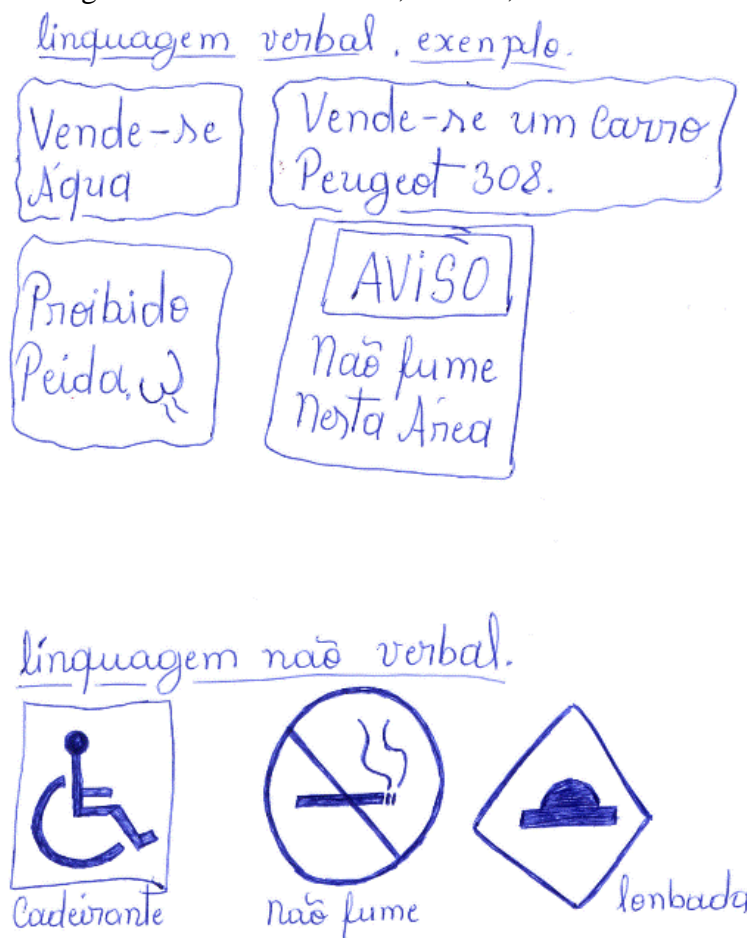 linguagem verbal, exenplo.
Vende-se
Água
Vende-se um Carro
Peugeot 308.
Proibido
Peida.
AViSO
Não fume
Nesta Área
línguagem não verbal.
Cadeirante
não fume
lonbada